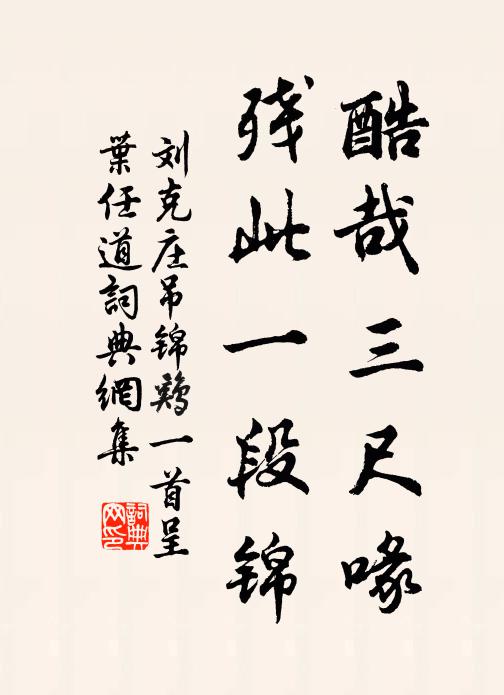 酷哉三尺喙
残此一段锦
刘克庄吊锦鸡一首呈
葉任道詞典網集
詞典网印